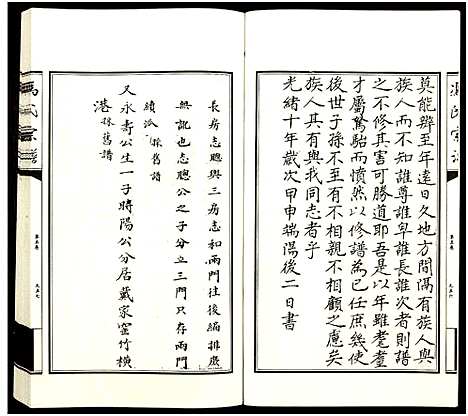 莫能辨至年遠日久地方間隔有族人與
族人而不知誰尊誰卑誰長誰次者則譜
之不修其害可勝道耶吾是以年雖耄耋
才屬駑駘而憤然以修譜為己任庶幾使
後世子孫不至有不相親不相顧之慮矣
族人其有與我同志者乎
光緒十年歲次甲申端陽後二日書
長房志聰與三房志和兩門往後編排處
無訛也志聰公之子分立三門只存兩門
績 採舊譜
又永壽公生一子時陽公分居戴家窑竹橫
港 採舊譜